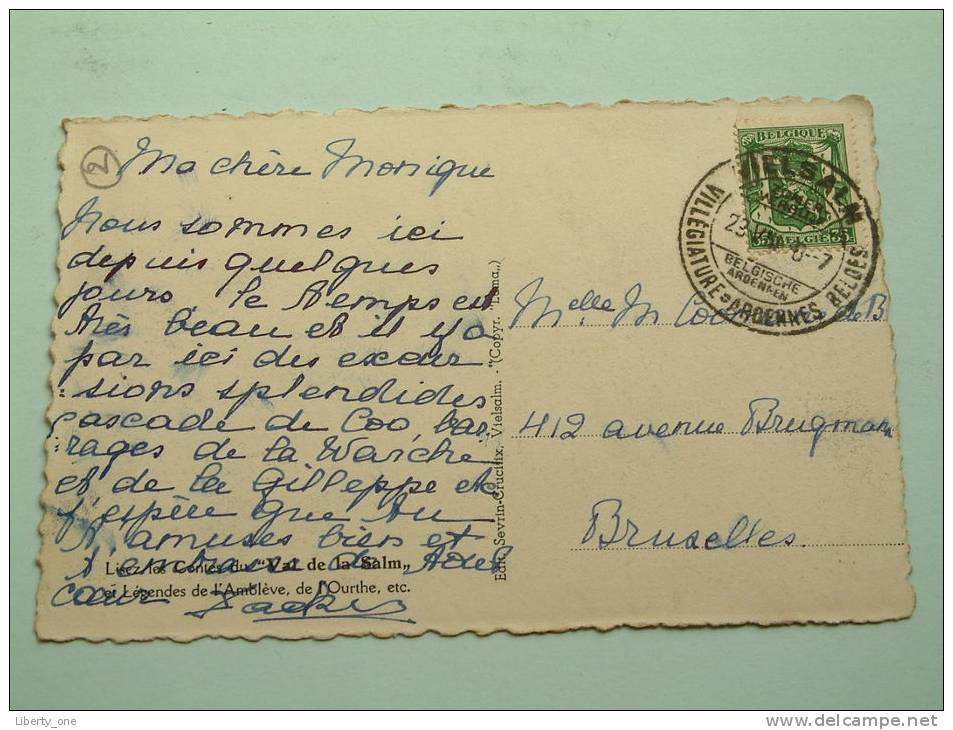 2
Ma chère Monique
Nous sommes ici
depuis quelques
jours, le temps est
très beau et il y a
par ici des excur
sions splendides
cascade de Coo, bar
rages de la Warche
et de la Gilleppe etc
j'espère que tu
t'amuses bien et
t'embrasse de tout
cœur
Lisez les Contes du "Val de la Salm„
et Légendes de l'Amblève, de l'Ourthe, etc.
Edit. Sevrin-Crucifix, Vielsalm. - (Copyr. "Luma„)
BELGIQUE
35 BELGIE 35
VIELSALM
BELGISCHE
ARDENNEN
VILLEGIATURE ARDENNES BELGES
Melle M
412 avenue Brugmann
Bruselles
Liberty_one
www.delcampe.net